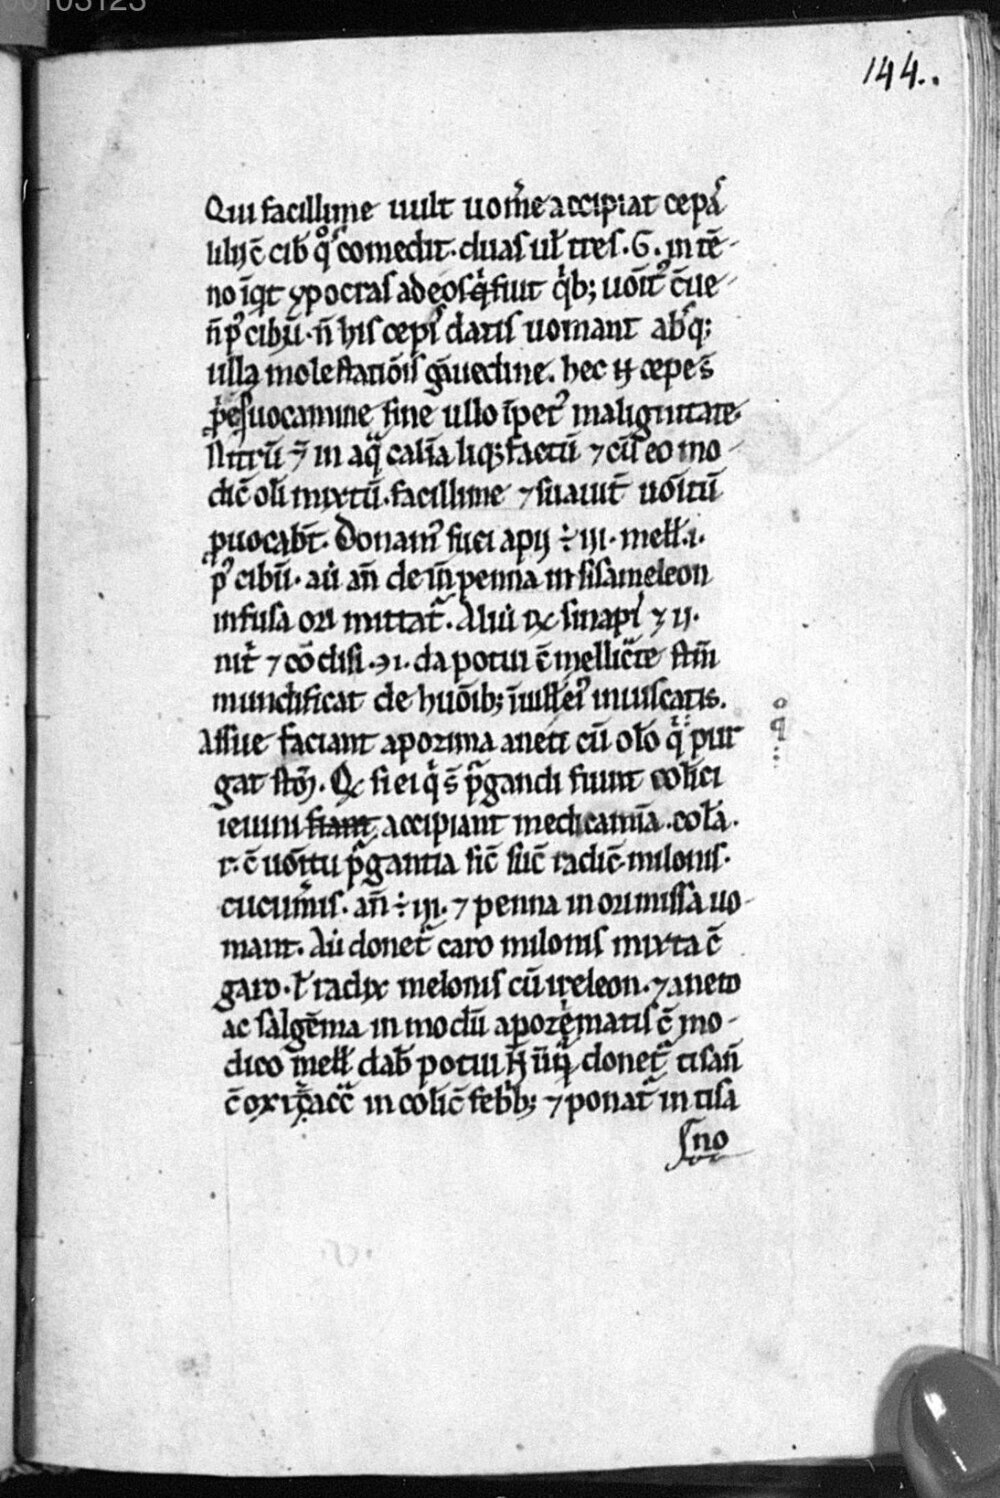 00103123
144..
Qui facillime uult uom̄e accipiat cepaſ
lilij c̄ cib q̊ſ comedit. duaſ ul̄ treſ. G. in tē-
no īqt ypocraſ ad eoſ fiut qͥb; uōit
cibū. n̄ hiſ cepiſ datiſ uomant abſq;
ulla moleſtatiōiſ gͣuedine. hec cepe
uocamine ſine ullo īpet᾽ malignitate.
Nitrū in aqͣ calīa liq;factū ⁊ cū eo mo-
dic̄ oli mixtū. facillime ⁊ ſuauit̄ uōitū
puocabt̄. Donam᾽ ſuci apij ÷ iij. mell. i.
p᾽ cibū. au̇ an̄ penna in ſiſameleon
infuſa ori mittat̄. Aliu̇ ꝶ ſinapiſ ʒ ij.
nit̄ ⁊ ℈ i. da potui c̄ mellicͣte ſtm̄
mundificat de huōib; inuiſcatis.
Aſſue faciant apozima aneti cū olo qͣ pur
gat ſtōm. ſi ei qͥ s̄ pͥgandi fiunt colͥici
ieiuni fiant accipiant medicamīa. cola.
r. c̄ uōitu pͥgantia ſic̄ ſuc̄ radic̄ miloniſ.
cucum̄iſ. an̄ ÷ iij. ⁊ penna in ori miſſa uo-
mant. Au̇ donet̄ caro miloniſ mixta c̄
garo. ł radix meloniſ cū ireleon. ⁊ aneto
ac ſalgēma in modū apozematiſ c̄ mo-
dico mell dab̄ potui donet̄ tiſan̄
c̄ in colic̄ feb̄b; ⁊ ponat̄ in tiſa
ſno